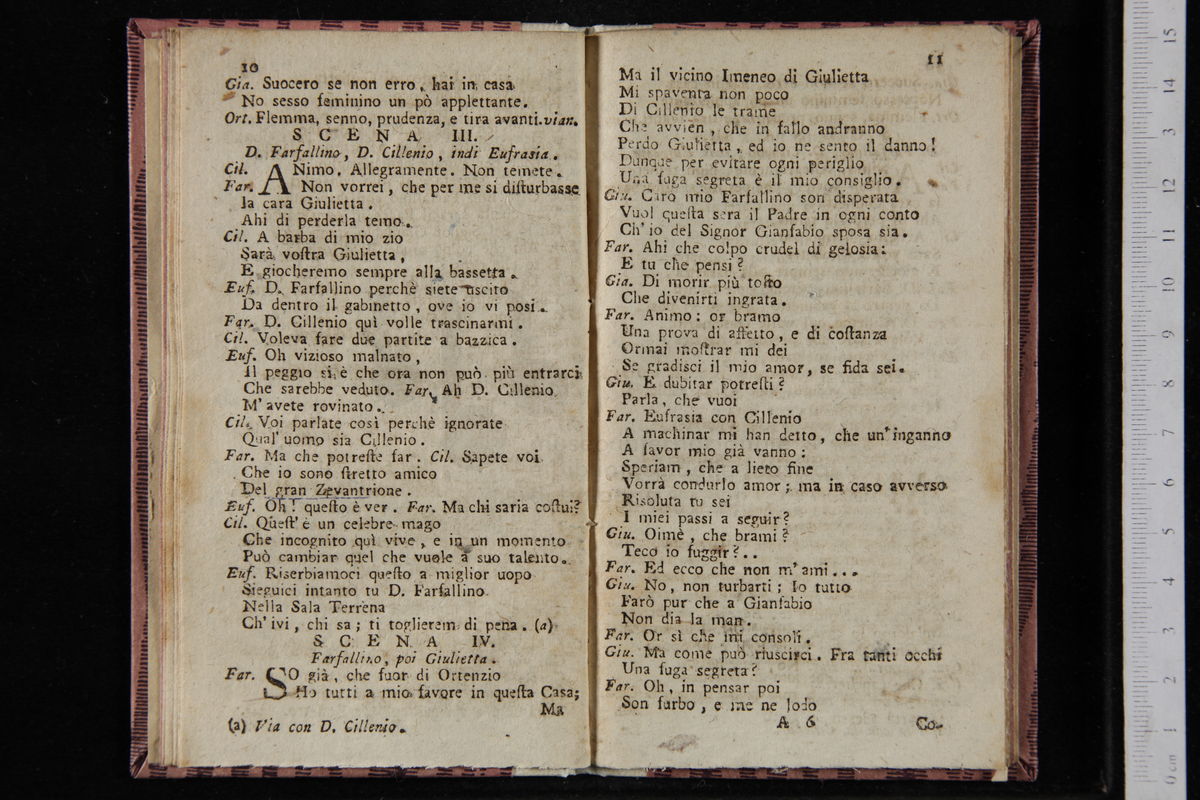 10
Gia. Suocero se non erro, hai in casa
No sesso feminino un pò applettante.
Ort. Flemma, senno, prudenza, e tira avanti. vian.
SCENA III.
D. Farfallino, D. Cillenio, indi Eufrasia.
Cil. ANimo. Allegramente. Non temete.
Far. Non vorrei, che per me si diſturbasse
la cara Giulietta.
Ahi di perderla temo.
Cil. A barba di mio zio
Sarà voſtra Giulietta,
E giocheremo sempre alla bassetta.
Euf. D. Farfallino perchè siete uscito
Da dentro il gabinetto, ove io vi posi.
Far. D. Cillenio quì volle trascinarmi.
Cil. Voleva fare due partite a bazzica.
Euf. Oh vizioso malnato,
Il peggio si è che ora non può più entrarci
Che sarebbe veduto. Far. Ah D. Cillenio
M' avete rovinato.
Cil. Voi parlate così perchè ignorate
Qual' uomo sia Cillenio.
Far. Ma che potreſte far. Cil. Sapete voi
Che io sono ſtretto amico
Del gran Zevantrione.
Euf. Oh! queſto è ver. Far. Ma chi saria coſtui?
Cil. Queſt' è un celebre mago
Che incognito quì vive, e in un momento
Può cambiar quel che vuole a suo talento.
Euf. Riserbiamoci queſto a miglior uopo
Sieguici intanto tu D. Farfallino
Nella Sala Terrena
Ch' ivi, chi sa; ti toglierem di pena. (a)
SCENA IV.
Farfallino, poi Giulietta.
Far. SO già, che fuor di Ortenzio
Ho tutti a mio favore in queſta Casa;
Ma
(a) Via con D. Cillenio.
11
Ma il vicino Imeneo di Giulietta
Mi spaventa non poco
Di Cillenio le trame
Che avvien, che in fallo andranno
Perdo Giulietta, ed io ne sento il danno!
Dunque per evitare ogni periglio
Una fuga segreta è il mio consiglio.
Giu. Caro mio Farfallino son disperata
Vuol queſta sera il Padre in ogni conto
Ch' io del Signor Gianfabio sposa sia.
Far. Ahi che colpo crudel di gelosia:
E tu che pensi?
Gia. Di morir più toſto
Che divenirti ingrata.
Far. Animo: or bramo
Una prova di affetto, e di coſtanza
Ormai moſtrar mi dei
Se gradisci il mio amor, se fida sei.
Giu. E dubitar potreſti?
Parla, che vuoi
Far. Eufrasia con Cillenio
A machinar mi han detto, che un' inganno
A favor mio già vanno:
Speriam, che a lieto fine
Vorrà condurlo amor; ma in caso avverso
Risoluta tu sei
I miei passi a seguir?
Giu. Oimè, che brami?
Teco io fuggir?..
Far. Ed ecco che non m' ami...
Giu. No, non turbarti; Io tutto
Farò pur che a Gianfabio
Non dia la man.
Far. Or sì che mi consoli.
Giu. Ma come può riuscirci. Fra tanti occhi
Una fuga segreta?
Far. Oh, in pensar poi
Son furbo, e me ne lodo
A 6 Co-